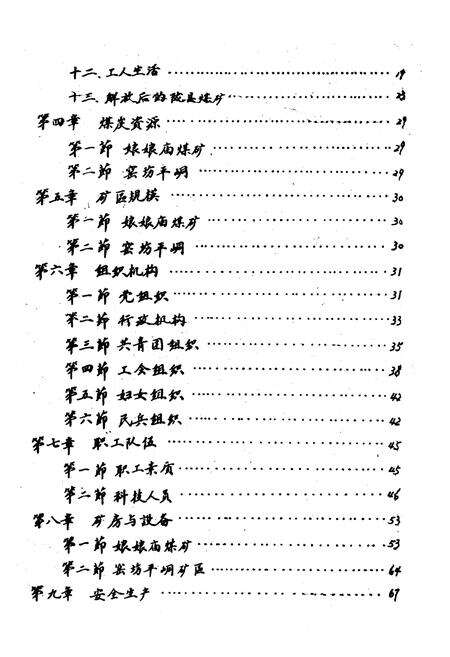 十二、工人生活 19
十三、解放后的陇县煤矿 23
第四章 煤炭资源 29
第一節 娘娘庙煤矿 29
第二節 窑坊平峒 29
第五章 矿区规模 30
第一節 娘娘庙煤矿 30
第二節 窑坊平峒 30
第六章 组织机构 31
第一節 党组织 31
第二節 行政机构 33
第三節 共青团组织 35
第四節 工会组织 38
第五節 妇女组织 42
第六節 民兵组织 42
第七章 职工队伍 45
第一節 职工素质 45
第二節 科技人员 46
第八章 矿房与設备 53
第一節 娘娘庙煤矿 53
第二節 窑坊平峒矿区 64
第九章 安全生产 67